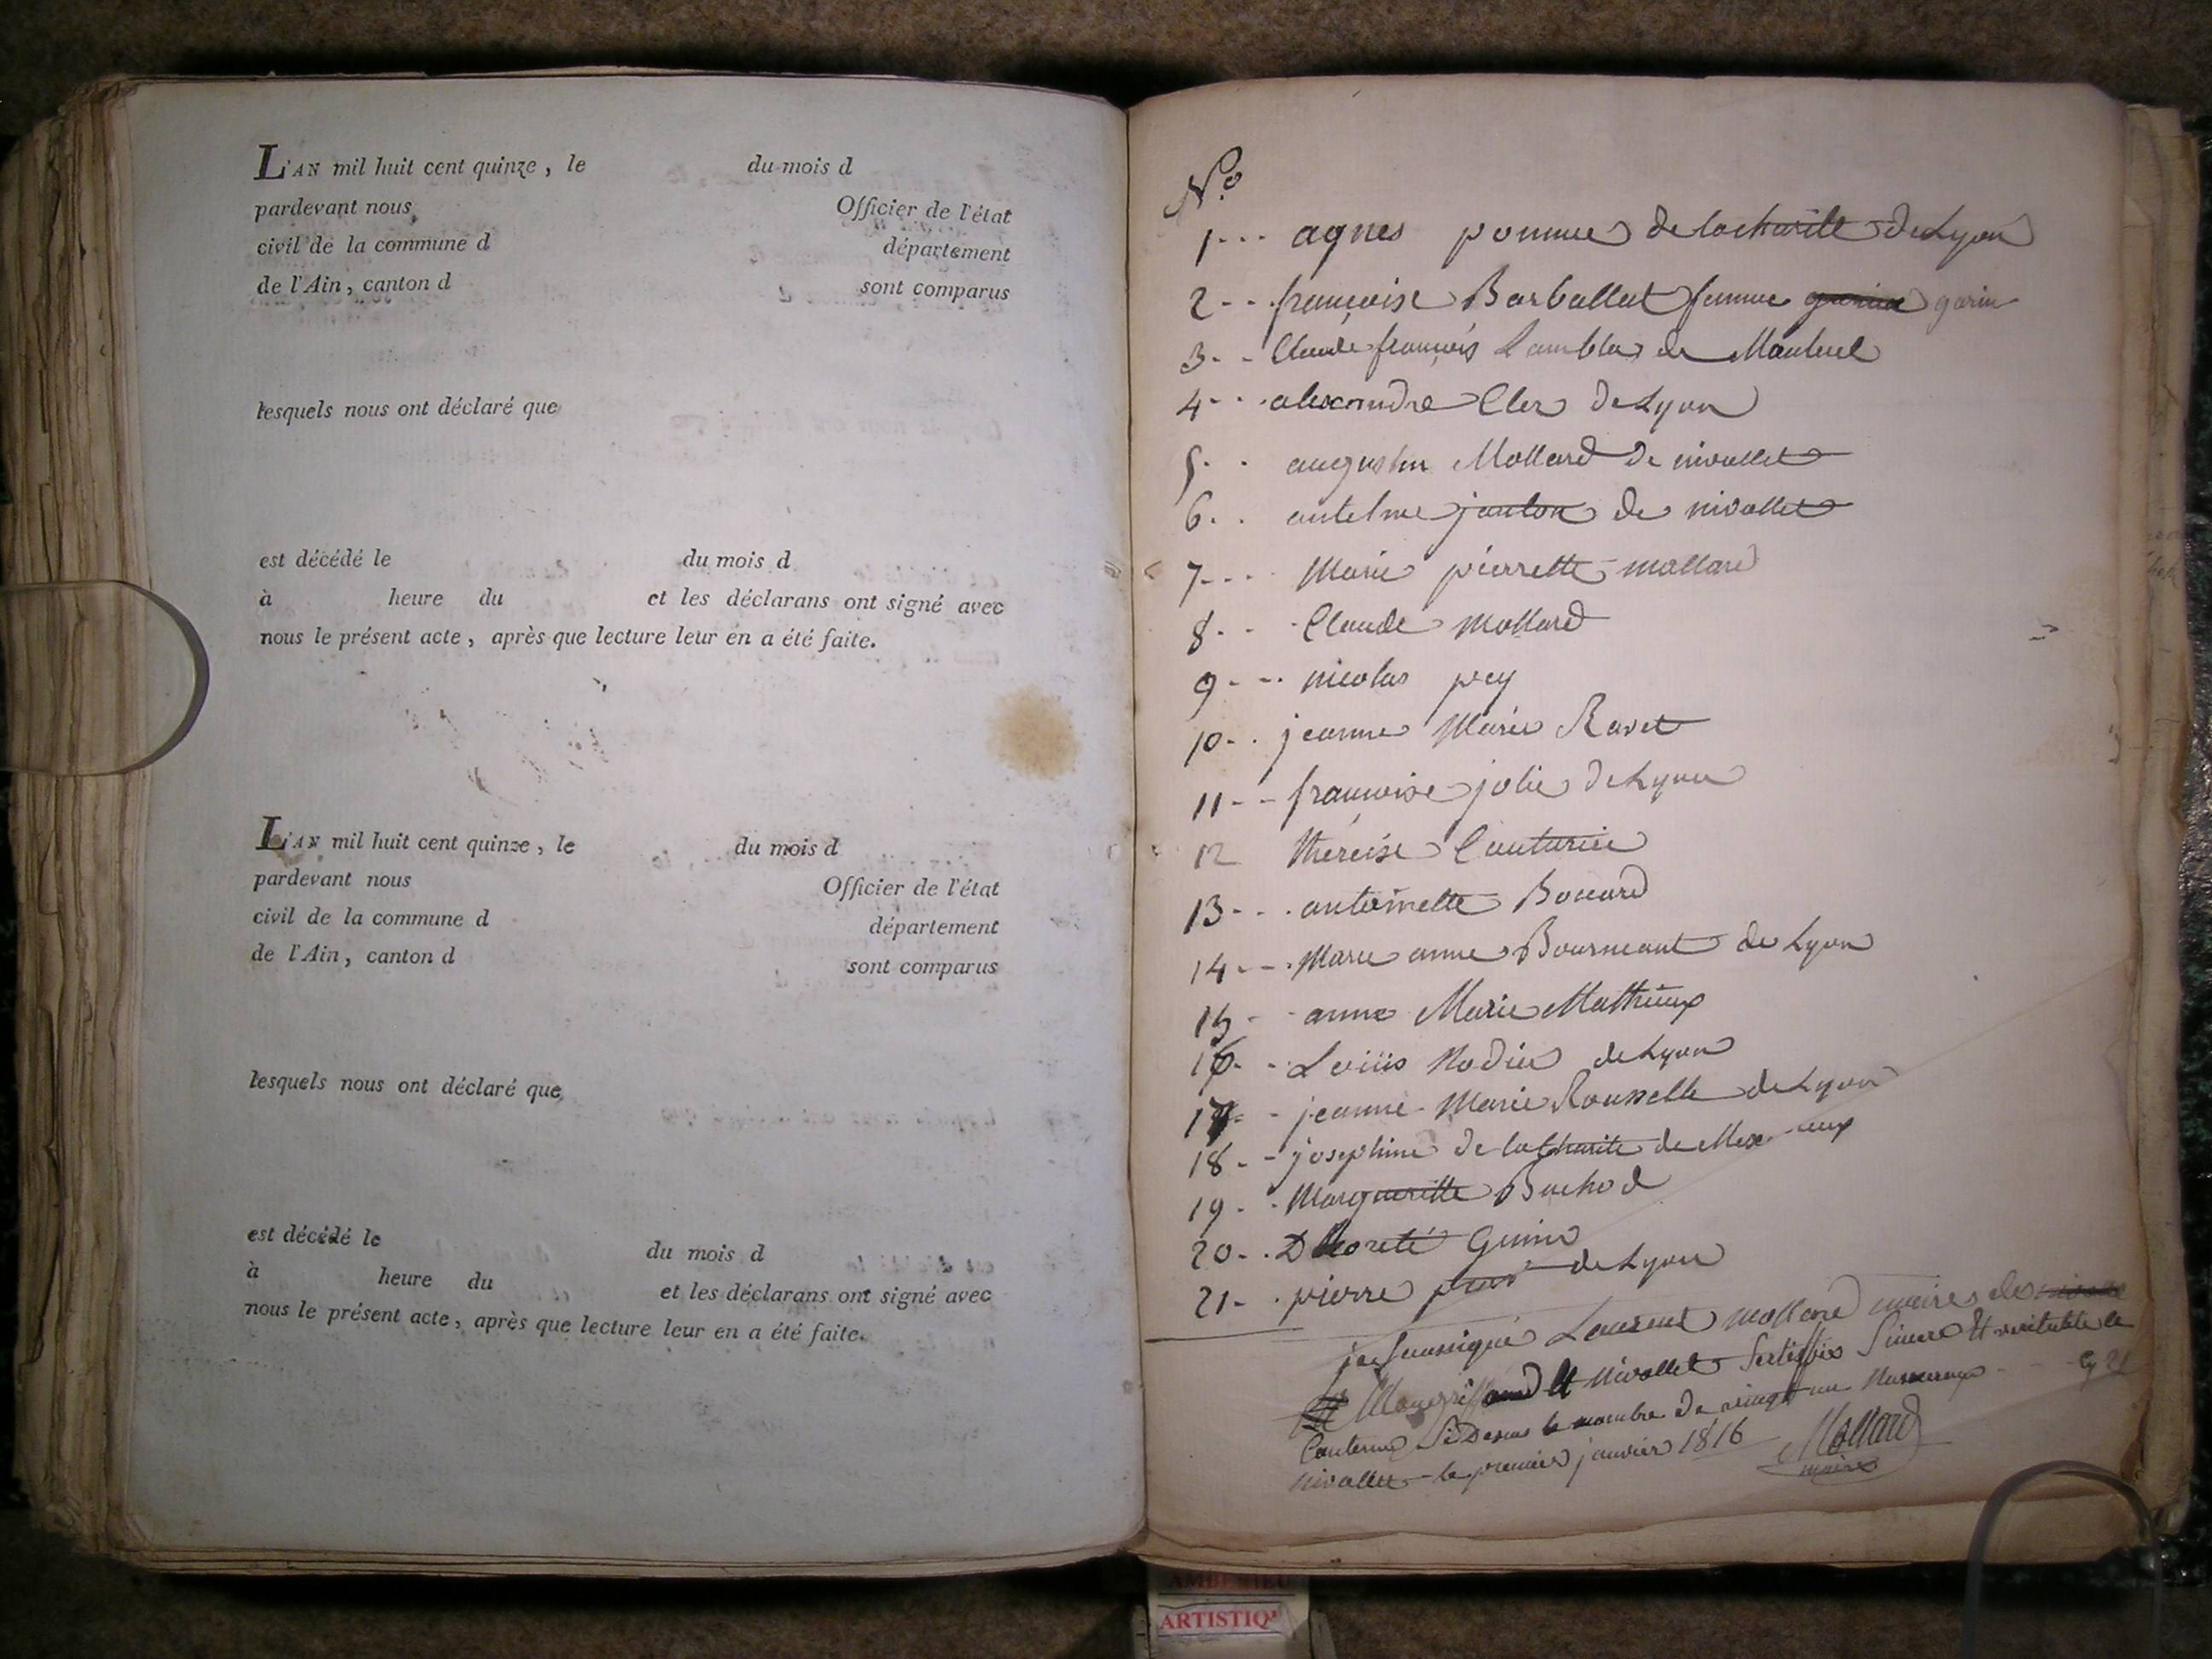 L'AN mil huit cent quinze, le du mois d
pardevant nous Officier de l'état
civil de la commune d département
de l'Ain, canton d sont comparus
lesquels nous ont déclaré que
est décédé le du mois d
à heure du et les déclarans ont signé avec
nous le présent acte, après que lecture leur en a été faite.
L'AN mil huit cent quinze, le du mois d
pardevant nous Officier de l'état
civil de la commune d département
de l'Ain, canton d sont comparus
lesquels nous ont déclaré que
est décédé le du mois d
à heure du et les déclarans ont signé avec
nous le présent acte, après que lecture leur en a été faite.
No
1 agnes de la charité de Lyon
2 françoise femme garin
3 Claude françois de
4 alexandre Cler de Lyon
5 augustin Mollard de nivollet
6 antelme janton de nivollet
7 Marie pierrette mollard
8 Claude Mollard
9 nicolas pey
10 jeanne Marie Ravet
11 françoise jolie de Lyon
12 thereise Couturier
13 antoinette
14 Marie anne de Lyon
15 anne Marie Mathieux
16 Louis Nodier de Lyon
17 jeanne Marie Rousselle de Lyon
18 josephine de la Charité de
19 Margueritte Buchod
20
21 pierre de Lyon
je soussigné Laurent Mollard maire de
et nivollet sertiffie sincere et veritable le
Contenu si Desus le nombre de vingt un Numeraux 21
nivollet le premier janvier 1816 Mollard
maire
AMBERIEU
ARTISTIQ